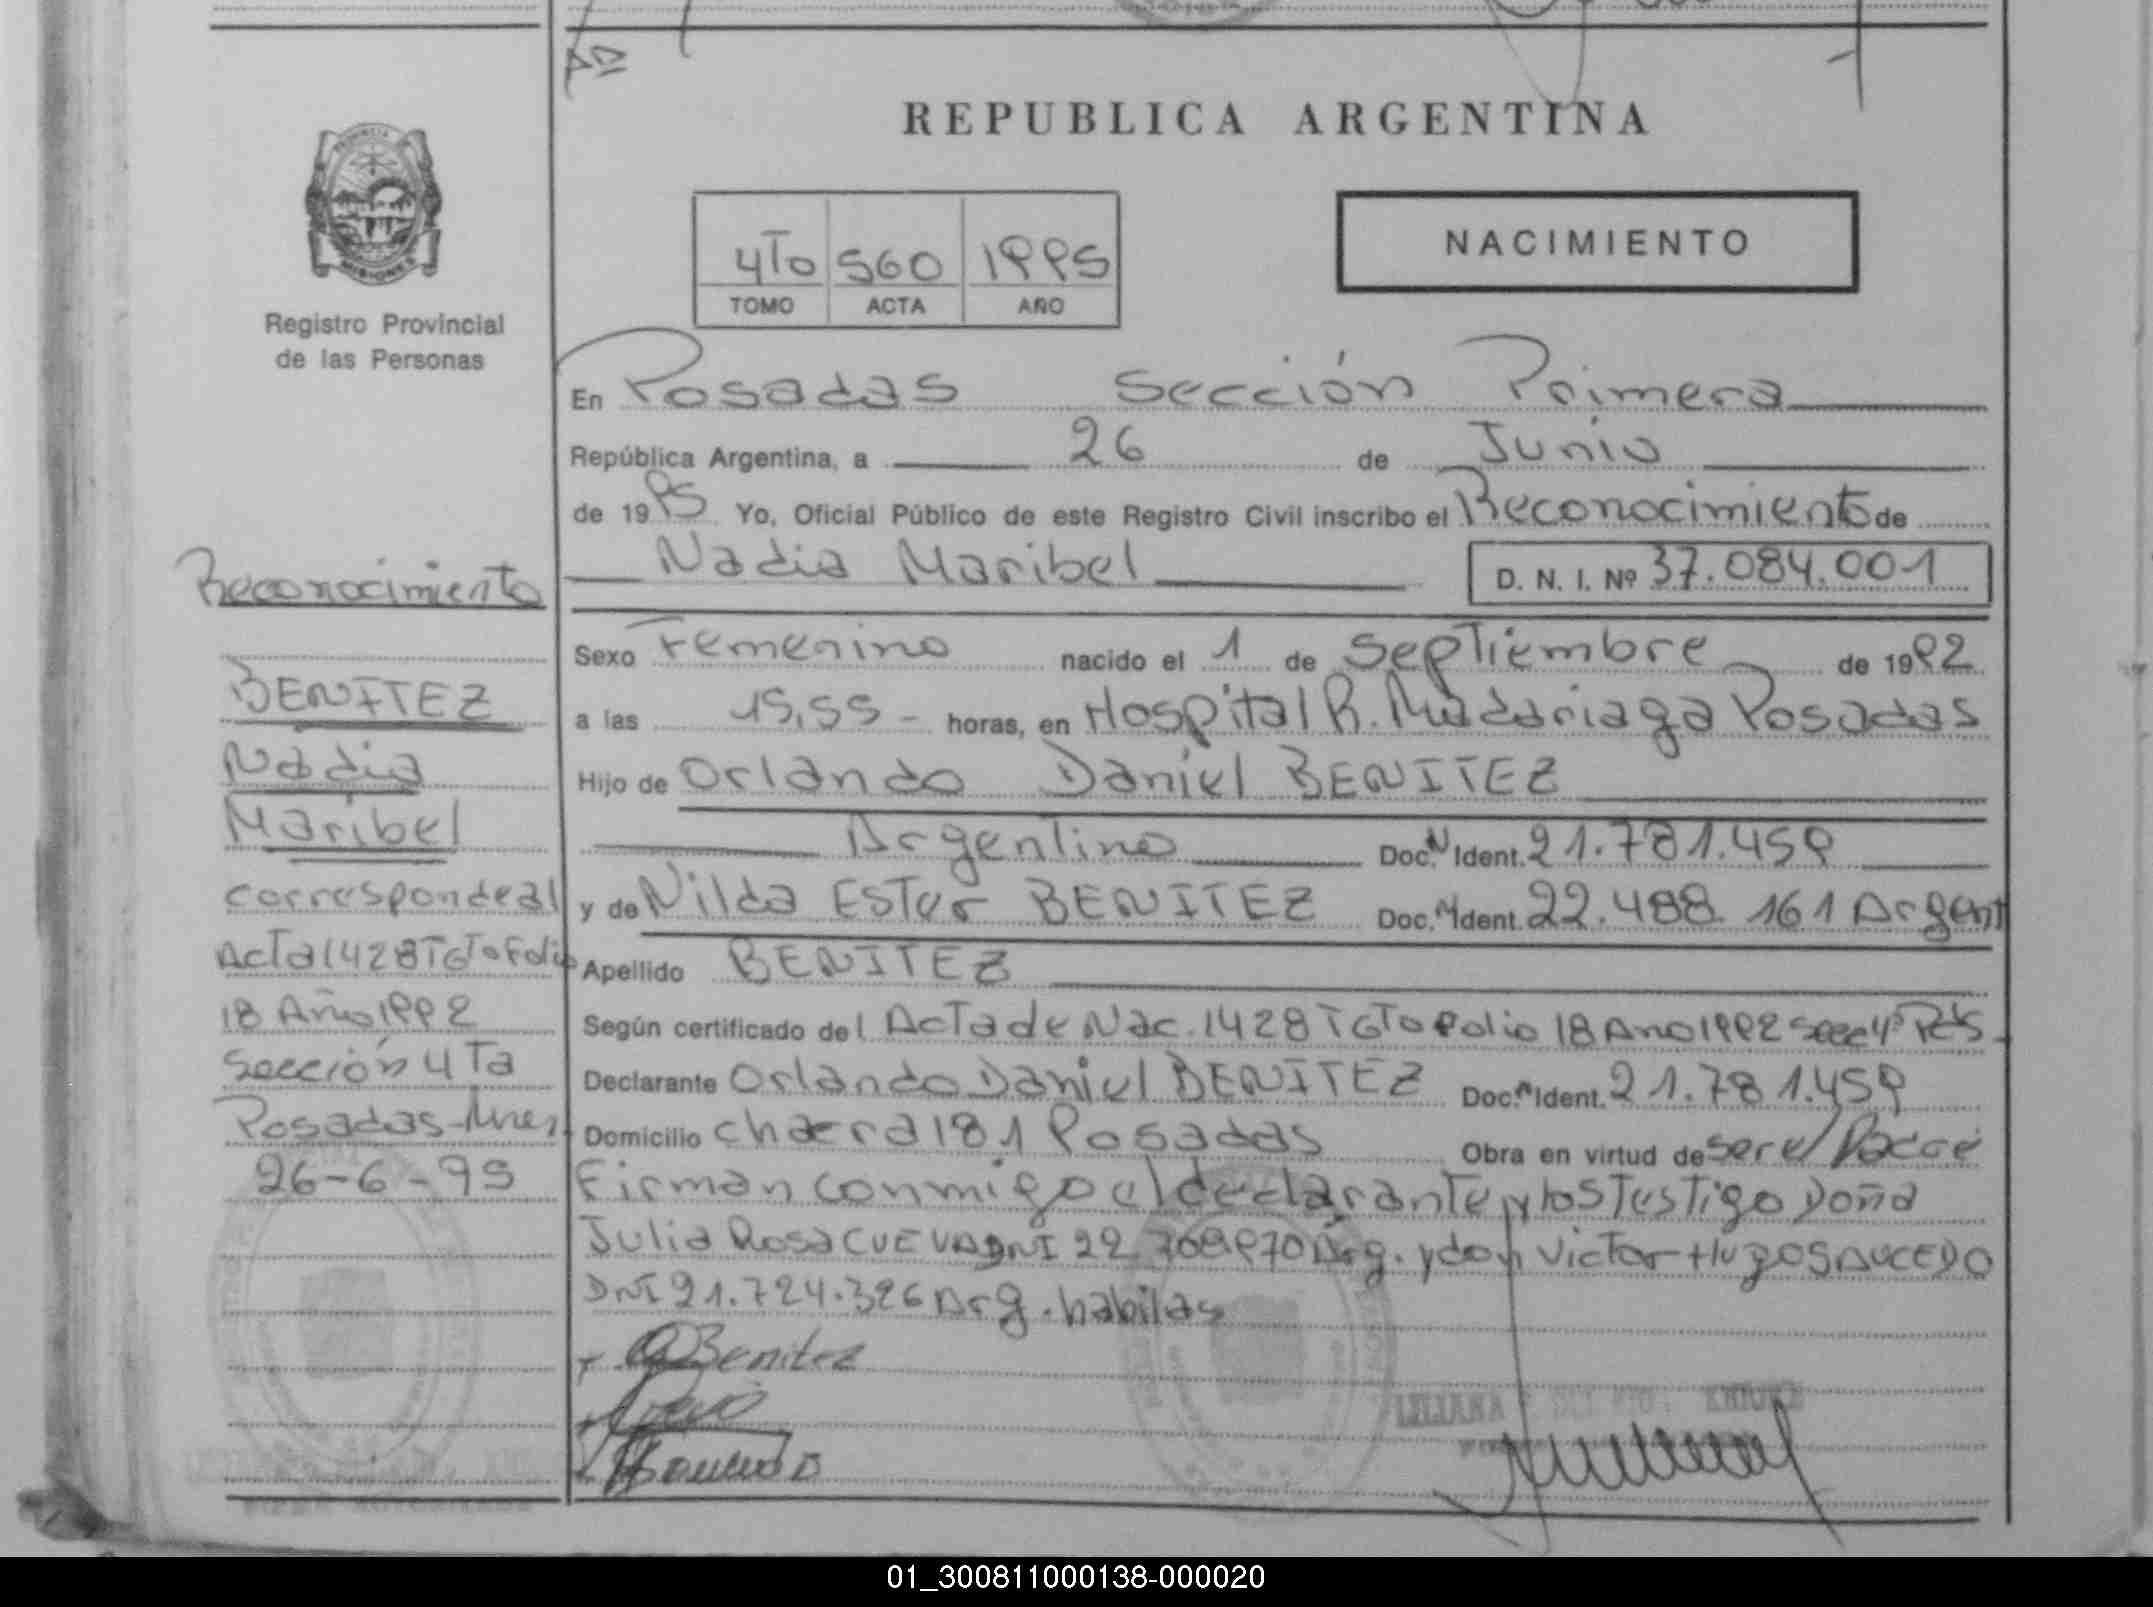 REPUBLICA ARGENTINA
PROVINCIA
MISIONES
Registro Provincial
de las Personas
4To 560 1995
TOMO ACTA AÑO
NACIMIENTO
En Posadas Sección Primera
República Argentina, a 26 de Junio
de 1995 Yo, Oficial Público de este Registro Civil inscribo el Reconocimiento de
Nadia Maribel D. N. I. Nº 37.084.001
Sexo Femenino nacido el 1 de Septiembre de 1992
a las 15,55 - horas, en Hospital R. Madariaga Posadas
Hijo de Orlando Daniel BENITEZ
Argentino Doc. N Ident. 21.781.459
y de Nilda Ester BENITEZ Doc. N Ident. 22.488.161 Argent
Apellido BENITEZ
Según certificado del Acta de Nac. 1428 T6To Folio 18 Año 1992 Secc 4º Pds.
Declarante Orlando Daniel BENITEZ Doc. N Ident. 21.781.459
Domicilio chacra 181 Posadas Obra en virtud de ser el Padre
Firman conmigo el declarante y los Testigo Doña
Julia Rosa CUEVA DNI 22.708.970 Arg. y don Victor Hugo SAUCEDO
DNI 21.724.326 Arg. habiles
Benitez
LILIANA
Reconocimiento
BENITEZ
Nadia
Maribel
corresponde al
Acta 1428 T6To Folio
18 Año 1992
Sección 4Ta
Posadas-Mnes
26-6-95
01_300811000138-000020